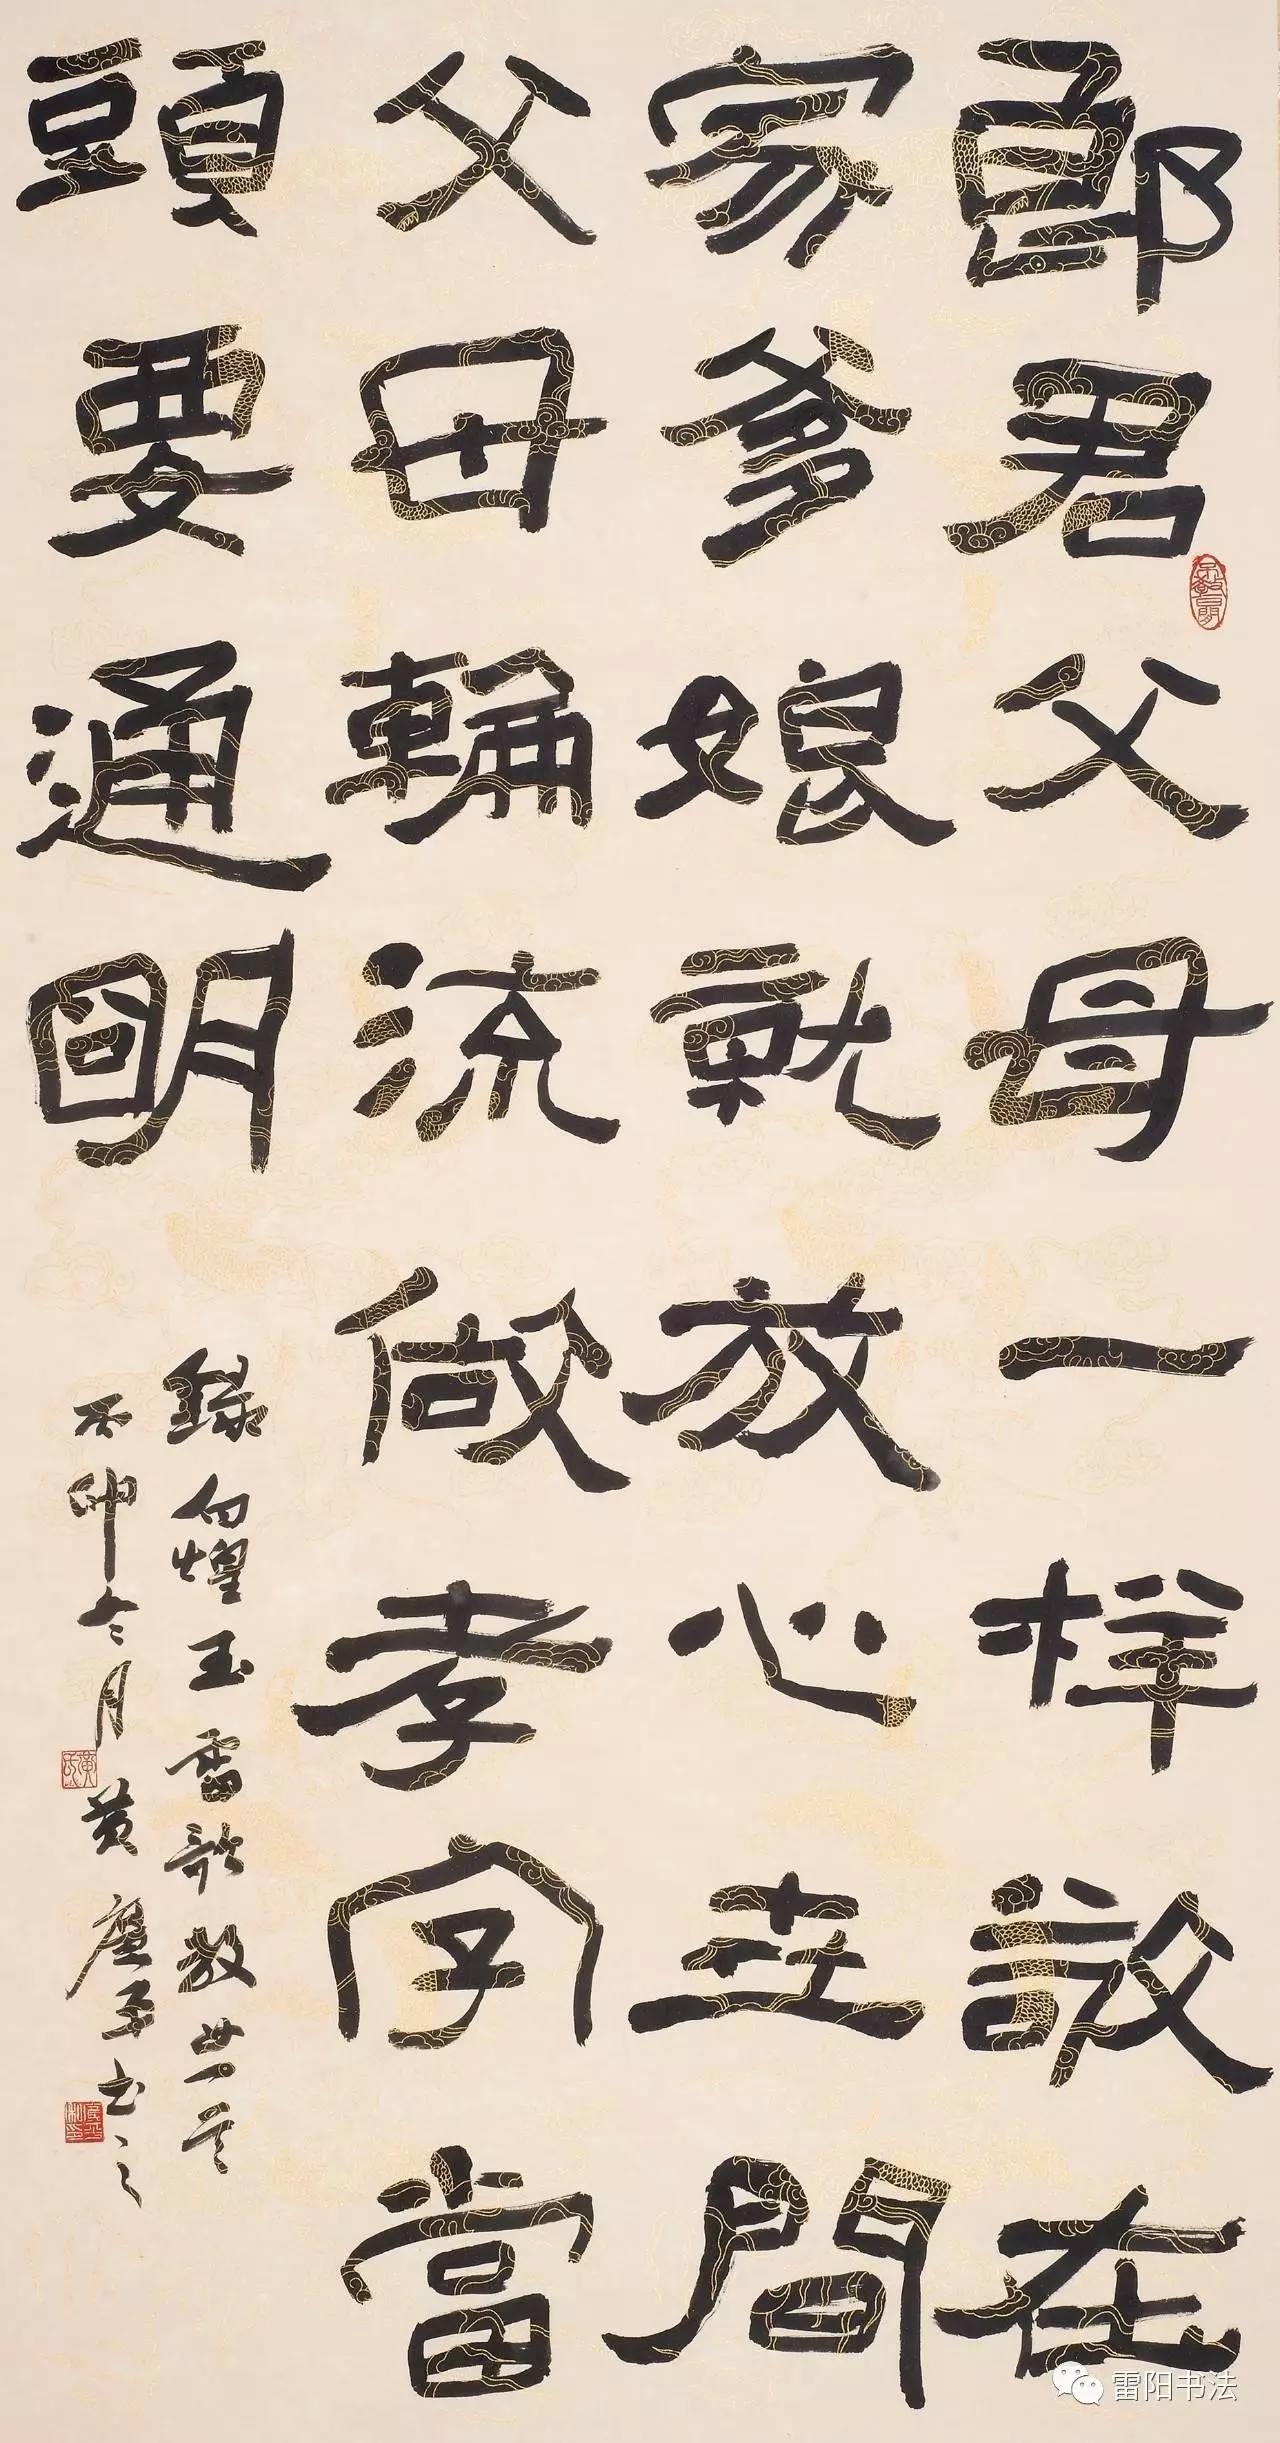 郎君父母一样敬在
家爹娘就放心世間
父母輪流做孝字當
頭要通明
錄向煌玉雷歌教世一首
丙申冬月黄
書之
雷阳书法